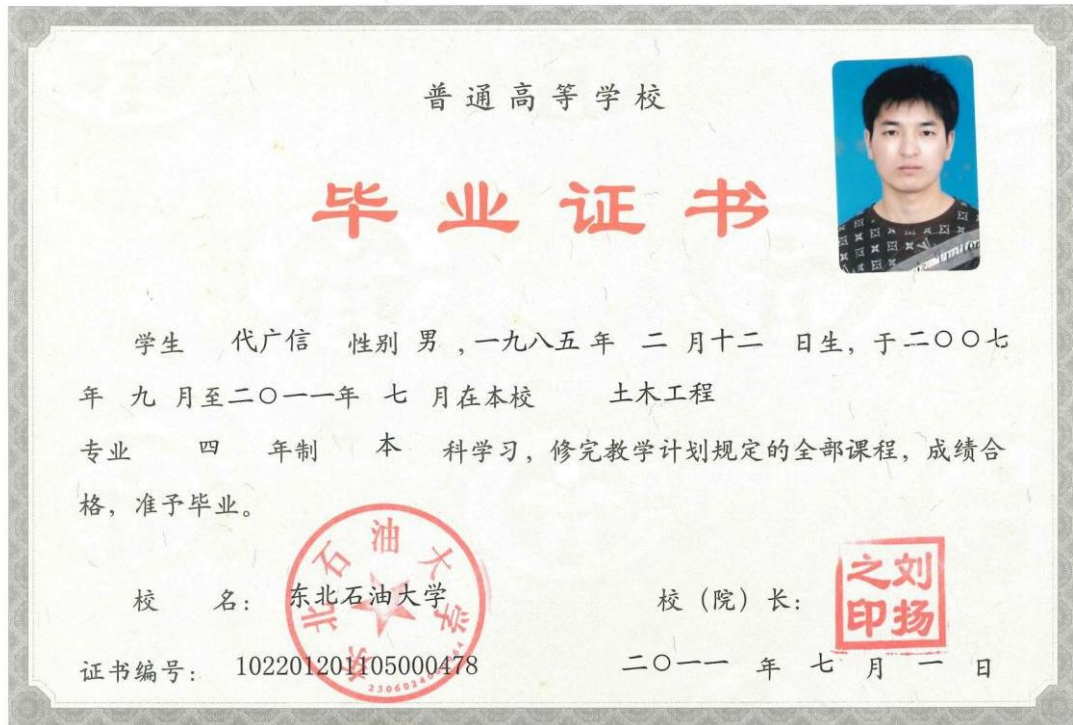 普通高等学校
毕业证书
学生 代广信 性别 男 ,一九八五 年 二 月十二 日生，于二〇〇七
年 九 月至二〇一一年 七 月在本校 土木工程
专业 四 年制 本 科学习，修完教学计划规定的全部课程，成绩合
格，准予毕业。
东北石油大学
校 名： 东北石油大学
校（院）长：
刘扬
之印
证书编号： 102201201105000478
二〇一一 年 七 月 一 日